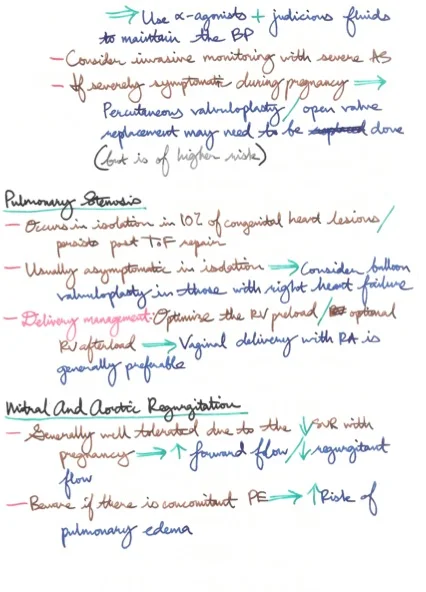 ⇒ Use α-agonists + judicious fluids
to maintain the BP
- Consider invasive monitoring with severe AS
- If severely symptomatic during pregnancy ⇒
Percutaneous valvuloplasty / open valve
replacement may need to be done
(but is of higher risk)
Pulmonary Stenosis
- Occurs in isolation in 10% of congenital heart lesions /
persists post ToF repair
- Usually asymptomatic in isolation ⇒ Consider balloon
valvuloplasty in those with right heart failure
- Delivery management: Optimise the RV preload /
RV afterload ⇒ Vaginal delivery with RA is
generally preferable
Mitral And Aortic Regurgitation
- Generally well tolerated due to the ↓ SVR with
pregnancy ⇒ ↑ forward flow / ↓ regurgitant
flow
- Beware if there is concomitant PE ⇒ ↑ Risk of
pulmonary edema